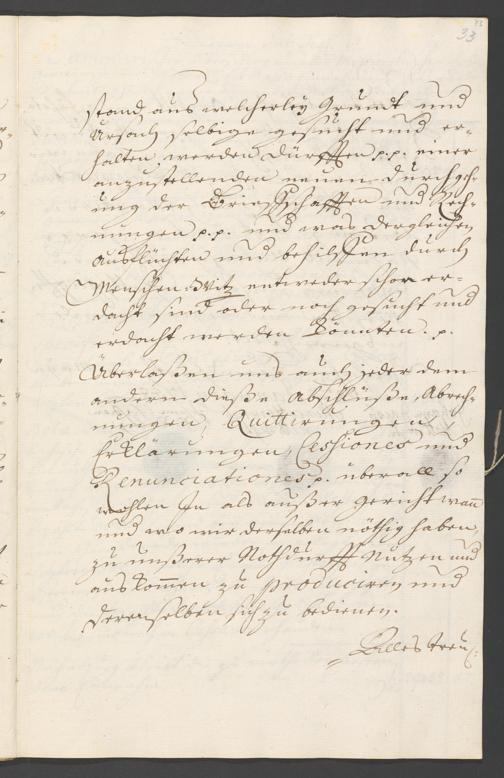 33
stand, aus welcherley Grundt und
Ursach selbige gesucht und er-
halten werden dürfften p.p. einer
anzustellenden neuen Durchgeh-
ung der Brieffschafften und Rech-
nungen p.p. und was dergleichen
Ausflüchten und behilffen durch
Menschen Witz entweder schon er-
dacht sind oder noch gesucht und
erdacht werden könnten. p.
Überlaßen uns auch jeder dem
andern dieße Abschlüße, Abrech-
nungen, Quittirungen
Erklärungen, Cessiones und
Renunciationes p. überall so
wohlen In als außer gericht wann
und wo wir derselben nöthig haben,
zu unßerer Nothdurfft Nutzen und
auskommen zu produciren und
derenselben sich zu bedienen.
Alles treu